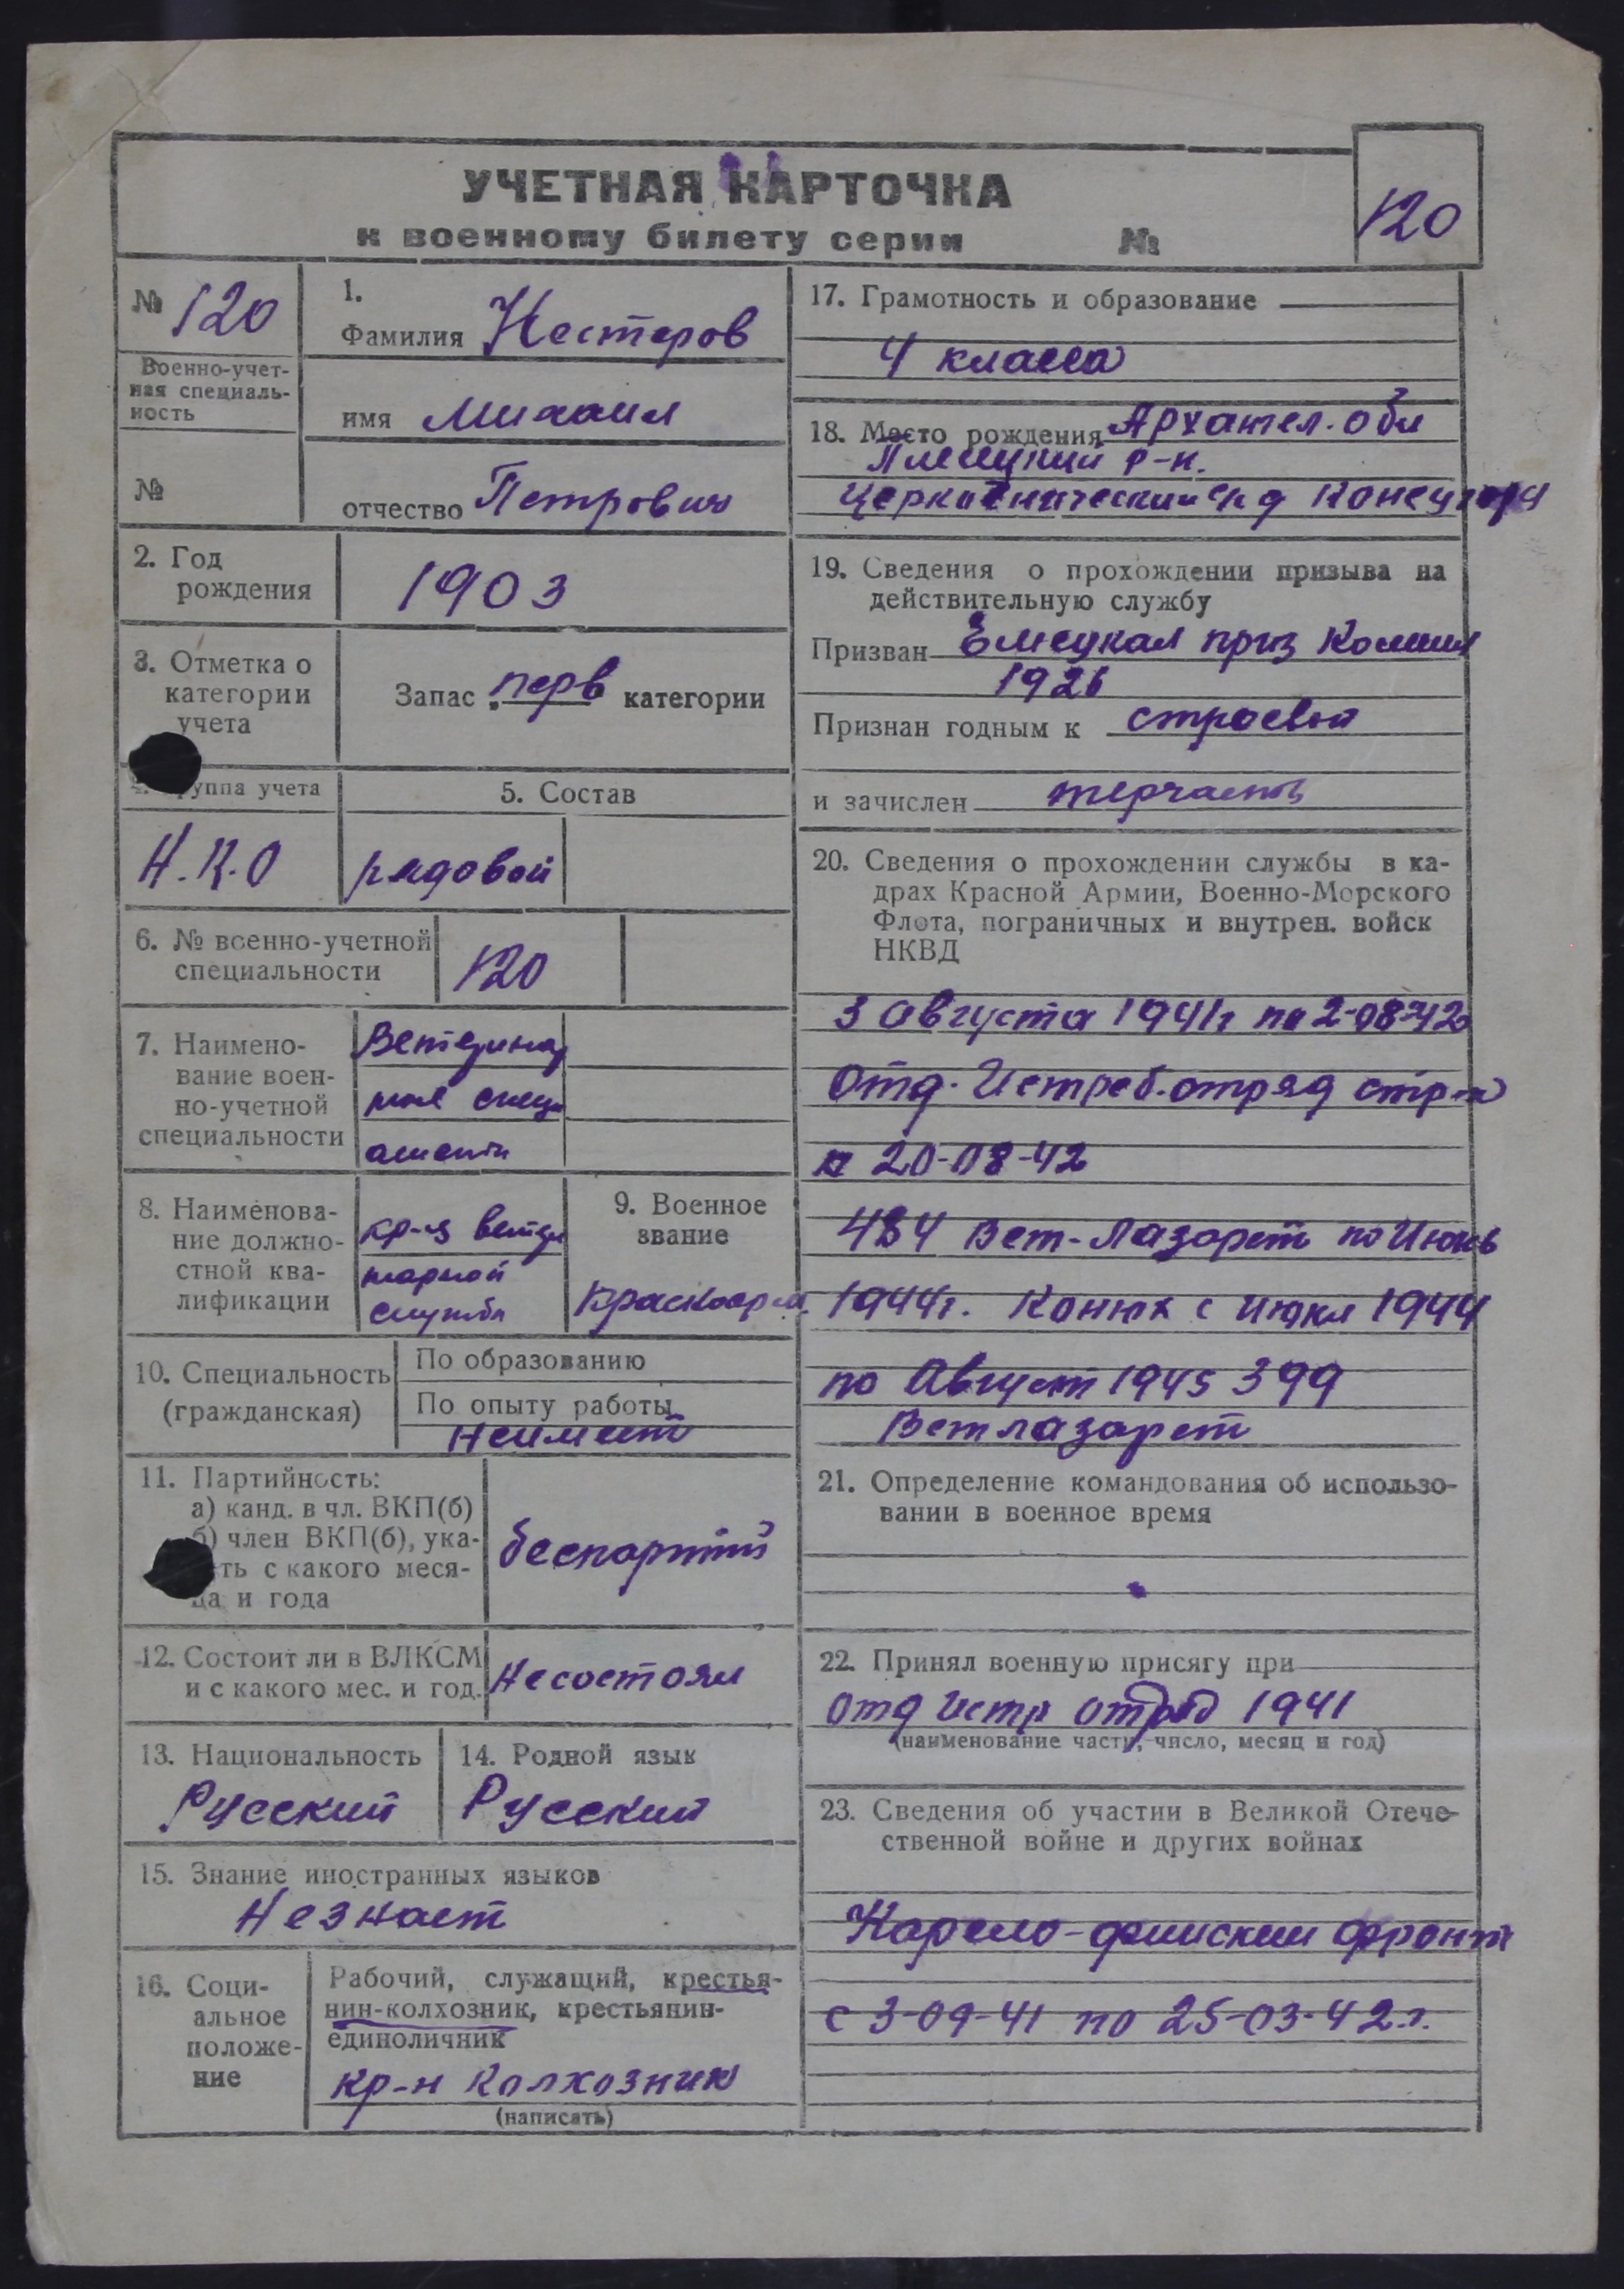 УЧЕТНАЯ КАРТОЧКА
к военному билету серии №
120
№ 120
Военно-учет-
ная специаль-
ность
№
1.
Фамилия Нестеров
имя Михаил
отчество Петрович
2. Год
рождения
1903
3. Отметка о
категории
учета
Запас перв категории
группа учета
Н.К.О
5. Состав
рядовой
6. № военно-учетной
специальности
120
7. Наимено-
вание воен-
но-учетной
специальности
Ветеринар
ные
8. Наименова-
ние должно-
стной ква-
лификации
кр-ц ветери
нарной
службы
9. Военное
звание
Красноарм.
10. Специальность
(гражданская)
По образованию
По опыту работы
Неимеет
11. Партийность:
а) канд. в чл. ВКП(б)
б) член ВКП(б), ука-
ть с какого меся-
ца и года
беспартий
12. Состоит ли в ВЛКСМ
и с какого мес. и год.
Несостоял
13. Национальность
Русский
14. Родной язык
Русский
15. Знание иностранных языков
Незнает
16. Соци-
альное
положе-
ние
Рабочий, служащий, крестья-
нин-колхозник, крестьянин-
единоличник
кр-н Колхозник
(написать)
17. Грамотность и образование
4 класса
18. Место рождения Архангел. обл
р-н.
19. Сведения о прохождении призыва на
действительную службу
Призван Емецкая приз Комисия
1926
Признан годным к строевой
и зачислен терчасть
20. Сведения о прохождении службы в ка-
драх Красной Армии, Военно-Морского
Флота, пограничных и внутрен. войск
НКВД
3 Августа 1941г по 2-08-42
Отд. Истреб. отряд стр-к
20-08-42
434 Вет-Лазарет по Июнь
1944г. Конюх с июня 1944
по Август 1945 399
Ветлазарет
21. Определение командования об использо-
вании в военное время
22. Принял военную присягу при
Отд Истр отряд 1941
(наименование части, число, месяц и год)
23. Сведения об участии в Великой Отече-
ственной войне и других войнах
Карело-финский фронт
с 3-09-41 по 25-03-42.г.